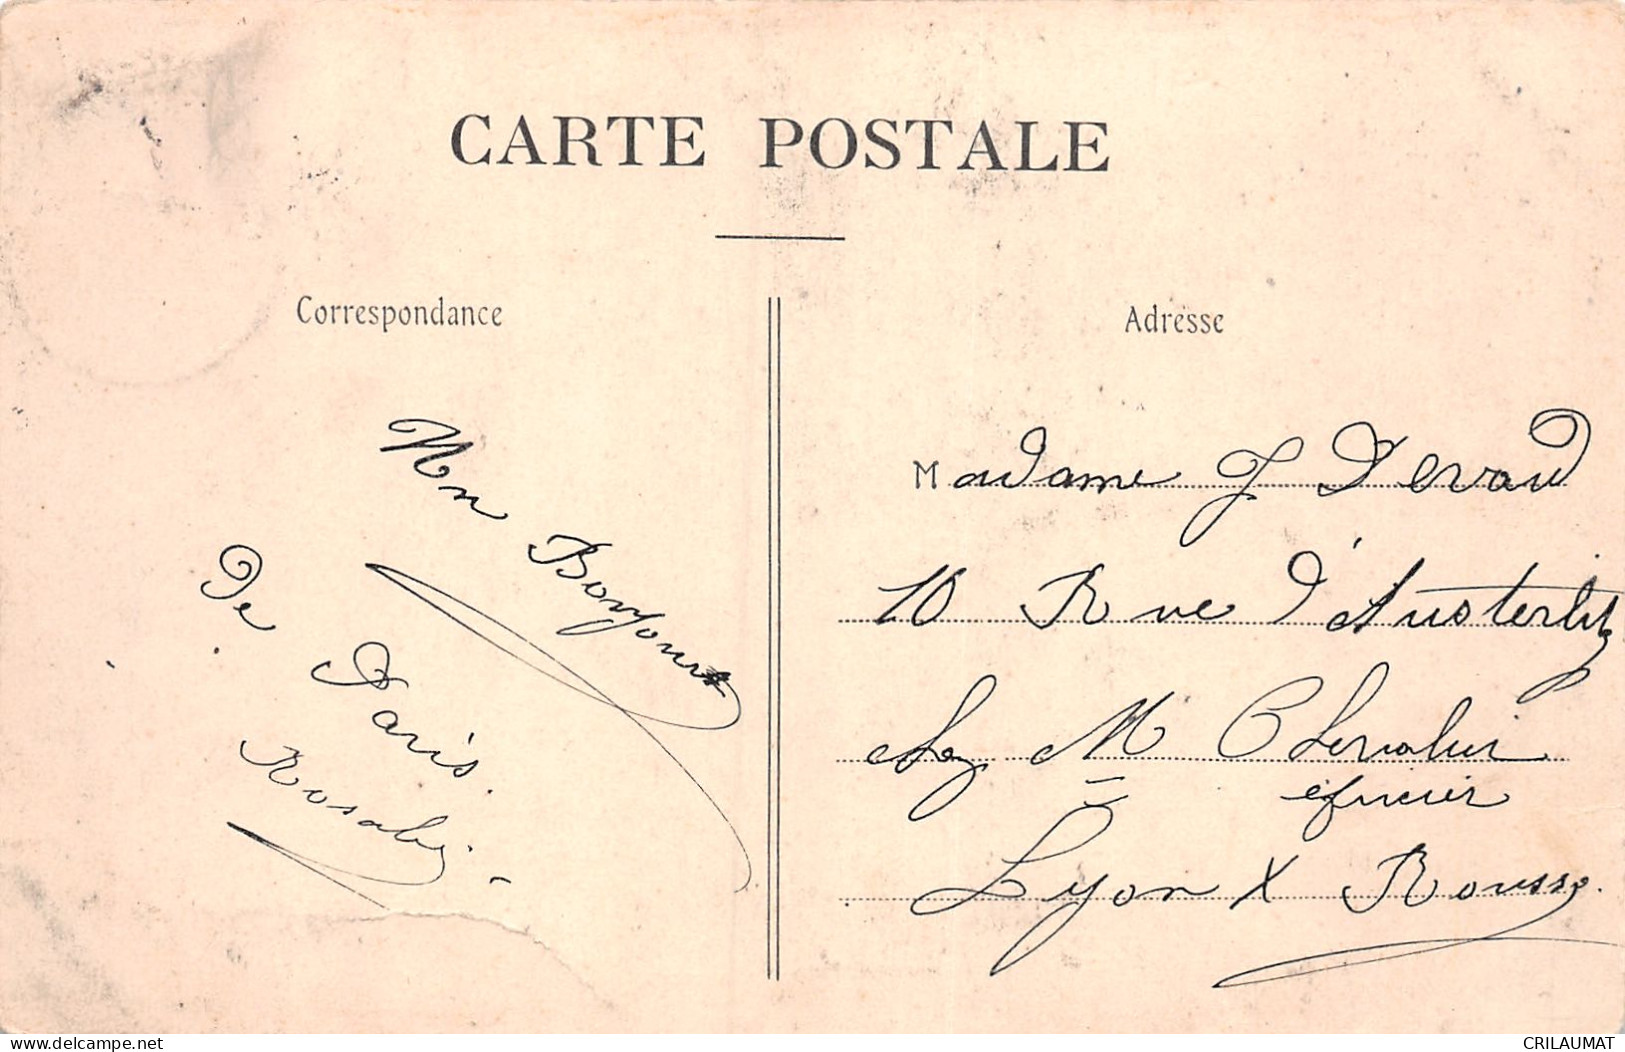 CARTE POSTALE
Correspondance
Un Bonjour
De Paris.
Rosaly
Adresse
Madame J Devaud
10 Rue d'Austerlitz
chez M Chevalier
épicier
Lyon X Rousse.
www.delcampe.net
CRILAUMAT